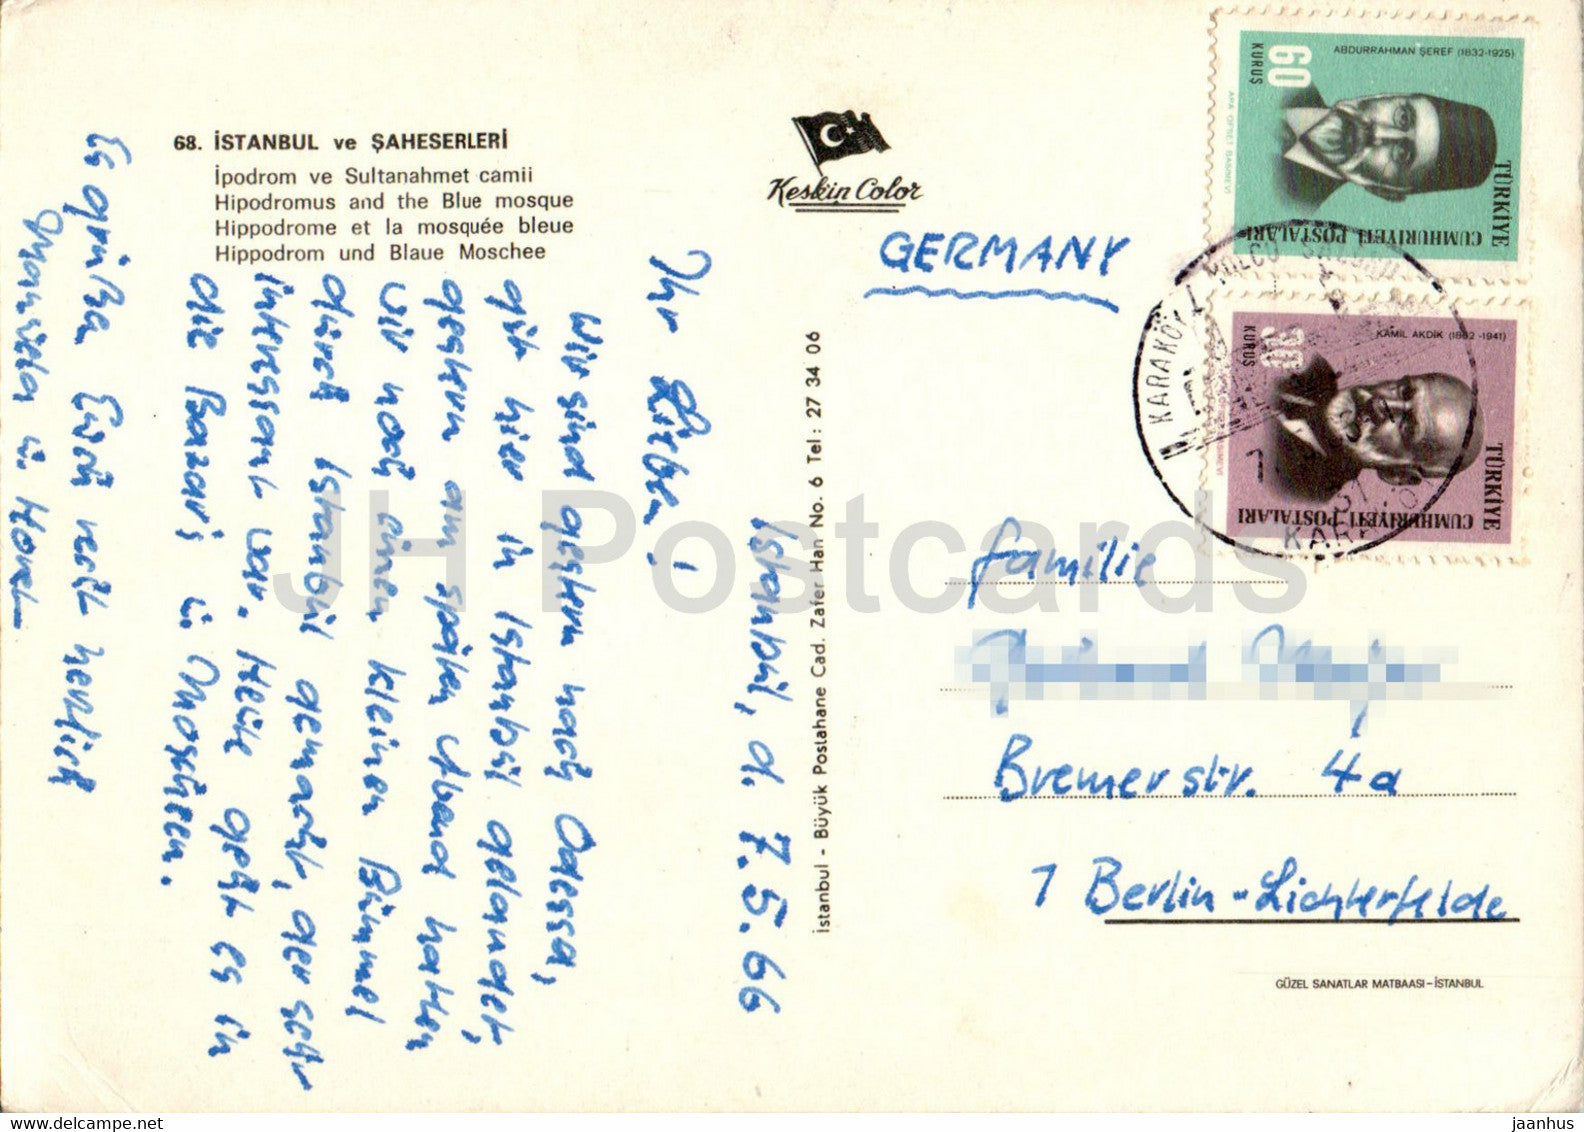 68. İSTANBUL ve ŞAHESERLERİ
İpodrom ve Sultanahmet camii
Hipodromus and the Blue mosque
Hippodrome et la mosquée bleue
Hippodrom und Blaue Moschee
Keskin Color
İstanbul, d. 7.5.66
Ihr Lieben!
Wir sind gestern nach Odessa,
gut hier in Istanbul gelandet,
gestern am späten Abend hatten
wir noch einen kleinen Bummel
durch Istanbul gemacht, der sehr
interessant war. Heute geht es in
die Bazar's u. Moscheen.
Es grüßen Euch recht herzlich
Manuela u.
İstanbul - Büyük Postahane Cad. Zafer Han No. 6 Tel : 27 34 06
GERMANY
ABDURRAHMAN ŞEREF (1832-1925)
60
KURUŞ
APA OFSET BASIMEVİ
TÜRKİYE
CUMHURİYETİ POSTALARI
KAMİL AKDİK (1862-1941)
30
KURUŞ
TÜRKİYE
CUMHURİYETİ POSTALARI
KARAKÖY
Familie
Bremerstr. 4a
1 Berlin-Lichterfelde
GÜZEL SANATLAR MATBAASI-İSTANBUL
JH Postcards
delcampe.net
jaanhus